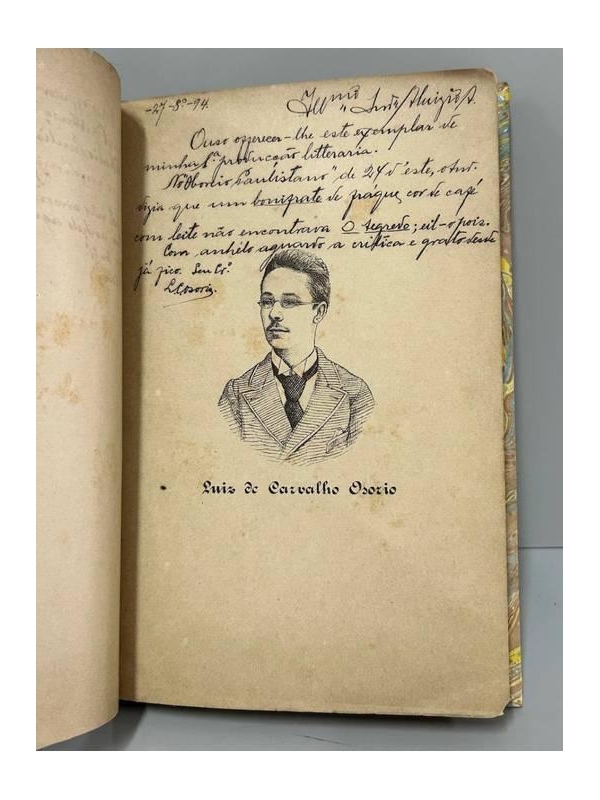 -27-8º-94.
Illmo Snr. Aluizio A.
Ouso offerecer-lhe este exemplar de
minha 1ª producção litteraria.
No "Commercio Paulistano" de 24 d'este,
dizia que um bonifrate de fraque, cor de café
com leite não encontrava O Segredo; eil-o pois.
Com anhélo aguardo a critica e grato desde
já fico. Seu Crº.
LOsorio.
Luiz de Carvalho Osorio